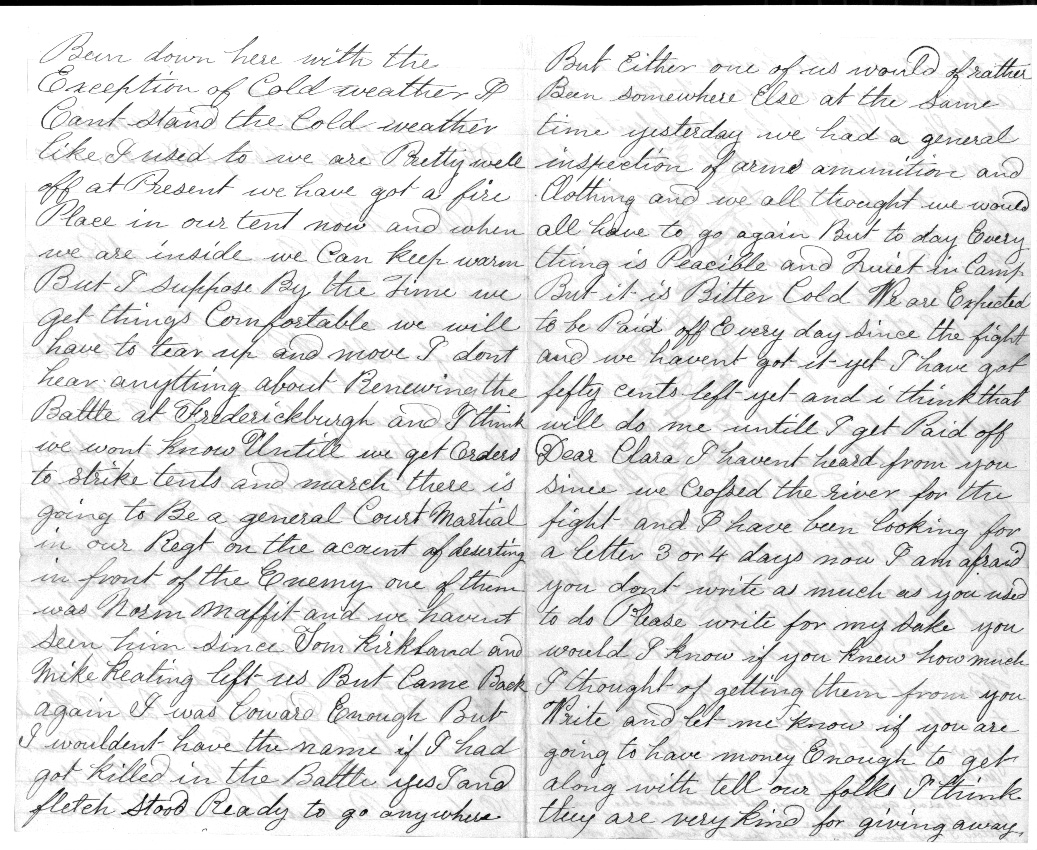 Been down here with the
Exception of Cold weather I
Cant stand the Cold weather
like I used to we are Pretty well
off at Present we have got a fire
Place in our tent now and when
we are inside we Can keep warm
But I suppose By the Time we
get things Comfortable we will
have to tear up and move I dont
hear anything about Renewing the
Battle at Frederickburgh and I think
we wont know Untill we get Orders
to strike tents and march there is
going to Be a general Court Martial
in our Regt on the acount of deserting
in front of the Enemy one of them
was Norm Maffit and we havent
seen him since Tom Kirkland and
Mike Keating left us But Came Back
again I was Coward Enough But
I wouldent have the name if I had
got killed in the Battle yes I and
fletch stood Ready to go anywhere
But Either one of us would of rather
Been somewhere Else at the same
time yesterday we had a general
inspection of arms amunition and
Clothing and we all thought we would
all have to go again But to day Every
thing is Peacible and Quiet in Camp
But it is Bitter Cold We are Expected
to be Paid off Every day since the fight
and we havent got it yet I have got
fifty cents left yet and i think that
will do me untill I get Paid off
Dear Clara I havent heard from you
since we Crossed the river for the
fight and I have been looking for
a letter 3 or 4 days now I am afraid
you dont write as much as you used
to do Please write for my sake you
would I know if you knew how much
I thought of getting them from you
Write and let me know if you are
going to have money Enough to get
along with tell our folks I think
they are very kind for giving away